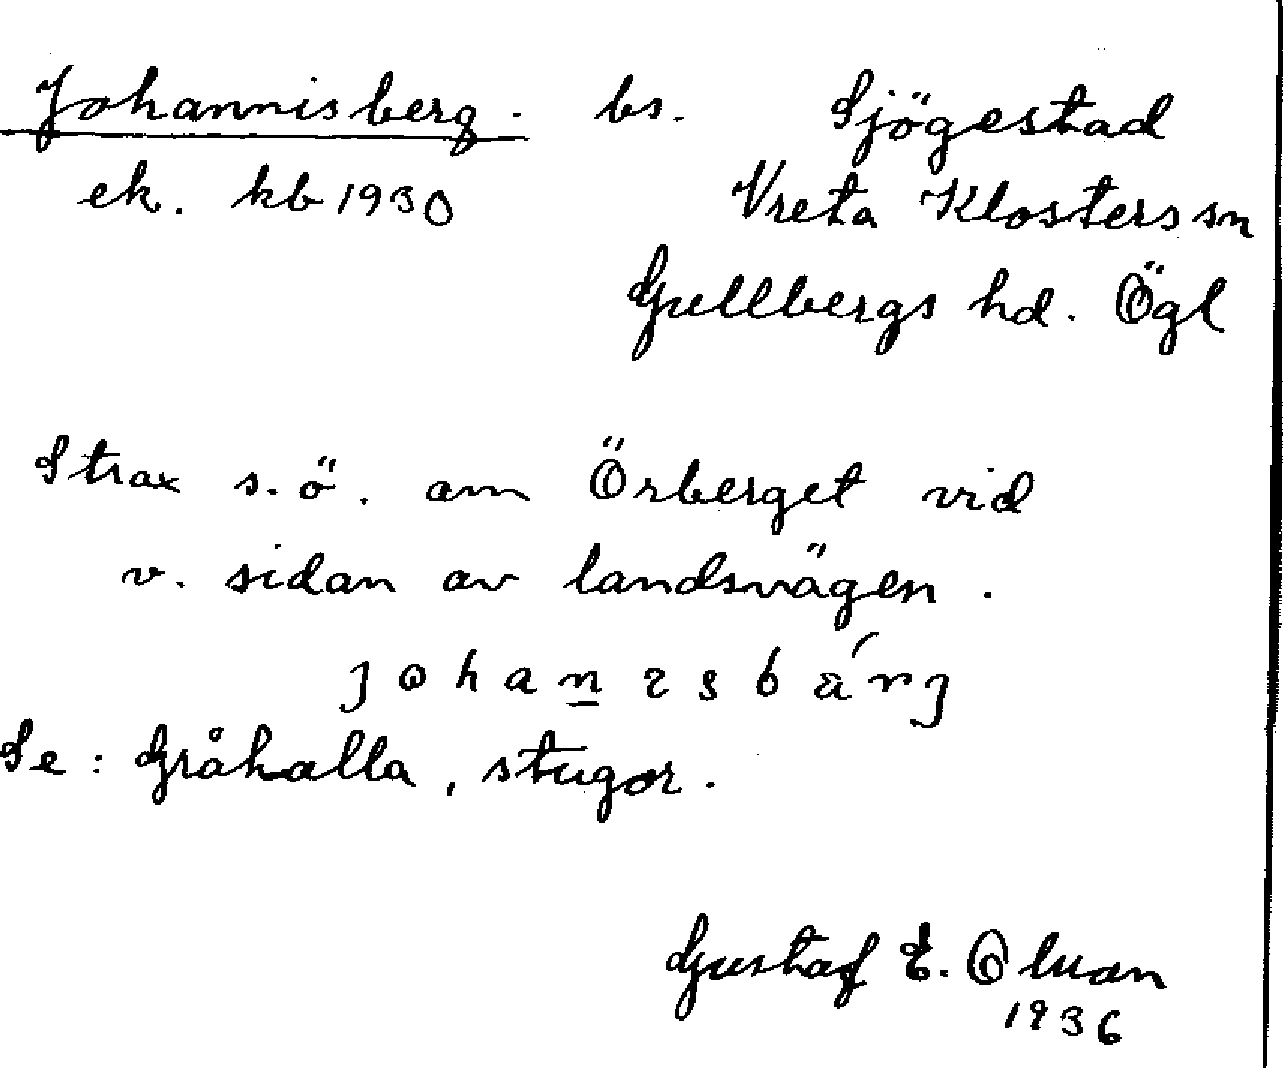 Johannisberg. bs. Sjögestad
ek. kb 1930 Vreta Klosters sn
Gullbergs hd. Ögl
Strax s.ö. om Örberget vid
v. sidan av landsvägen.
johan̲ɩsbä́rj
Se: Gråhalla, stugor.
Gustaf E.
1936